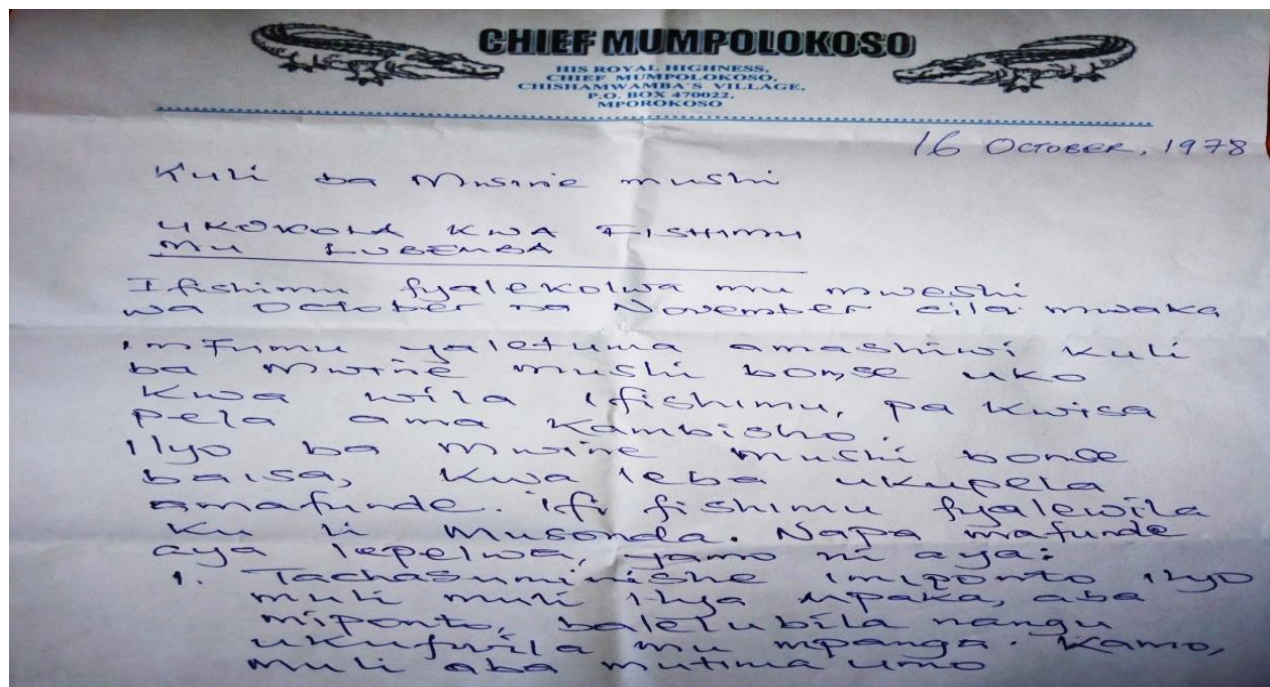 CHIEF MUMPOLOKOSO
HIS ROYAL HIGHNESS,
CHIEF MUMPOLOKOSO,
CHISHAMWAMBA'S VILLAGE,
P.O. BOX 470022,
MPOROKOSO
16 OCTOBER, 1978
Kuli ba Mwine mushi
UKOKOLA KWA FISHIMU
MU LUBEMBA
Ifishimu fyalekolwa mu mweshi
wa October na November cila mwaka
imfumu yaletuma amashiwi kuli
ba Mwine mushi bonse uko
kwa wila ifishimu, pa kwisa
pela ama kambisho.
Ilyo ba Mwine Mushi bonse
baisa, kwa leba ukupela
amafunde. ifi fishimu fyalewila
Ku li Musonda. Napa mafunde
aya lepelwa, yamo ni aya:
1. Tachasuminishe imiponto ilyo
muli muli ilya mpaka, aba
miponto, balelubila nangu
ukufwila mu mpanga. Kamo,
muli aba mutima umo